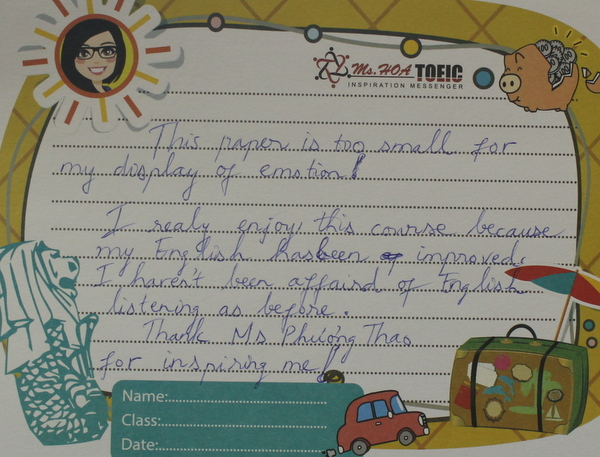 Ms. HOA TOEIC
INSPIRATION MESSENGER
This paper is too small for
my display of emotion!
I realy enjoy this course because
my English hasbeen improved.
I haven't been affaird of English
listening as before.
Thank Ms Phương Thao
for inspiring me!
Name:
Class:
Date: